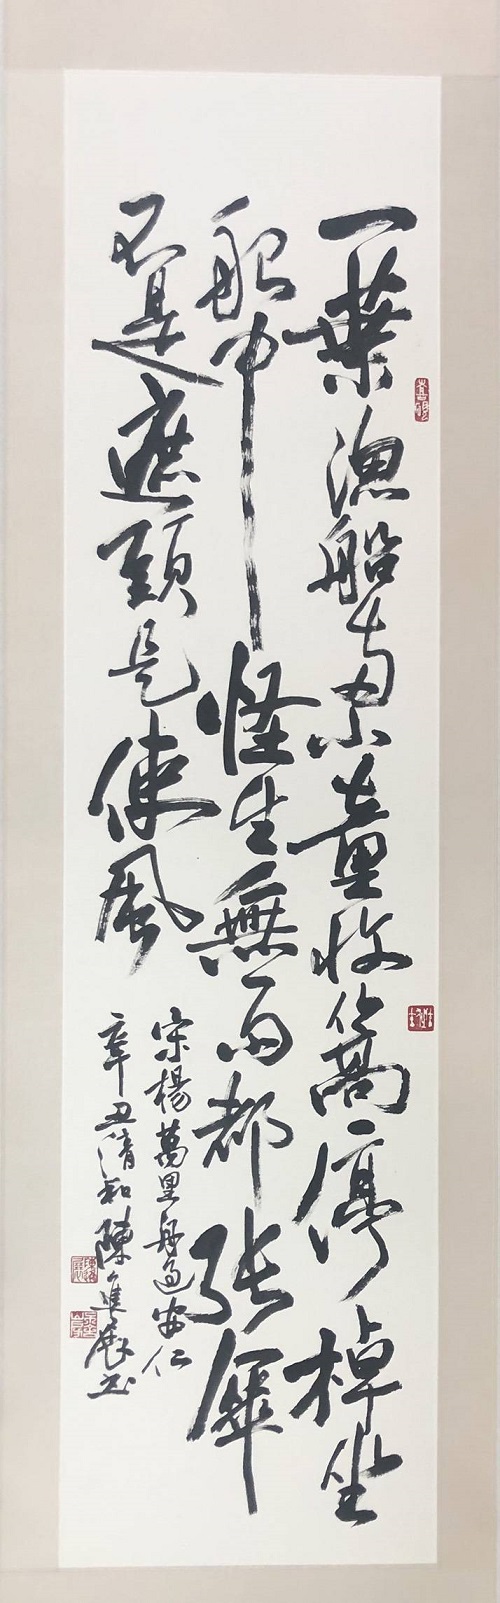 一葉漁船兩小童收篙停棹坐
船中怪生無雨都張傘
不是遮頭是使風
宋楊萬里舟過安仁
辛丑清和陳進展書